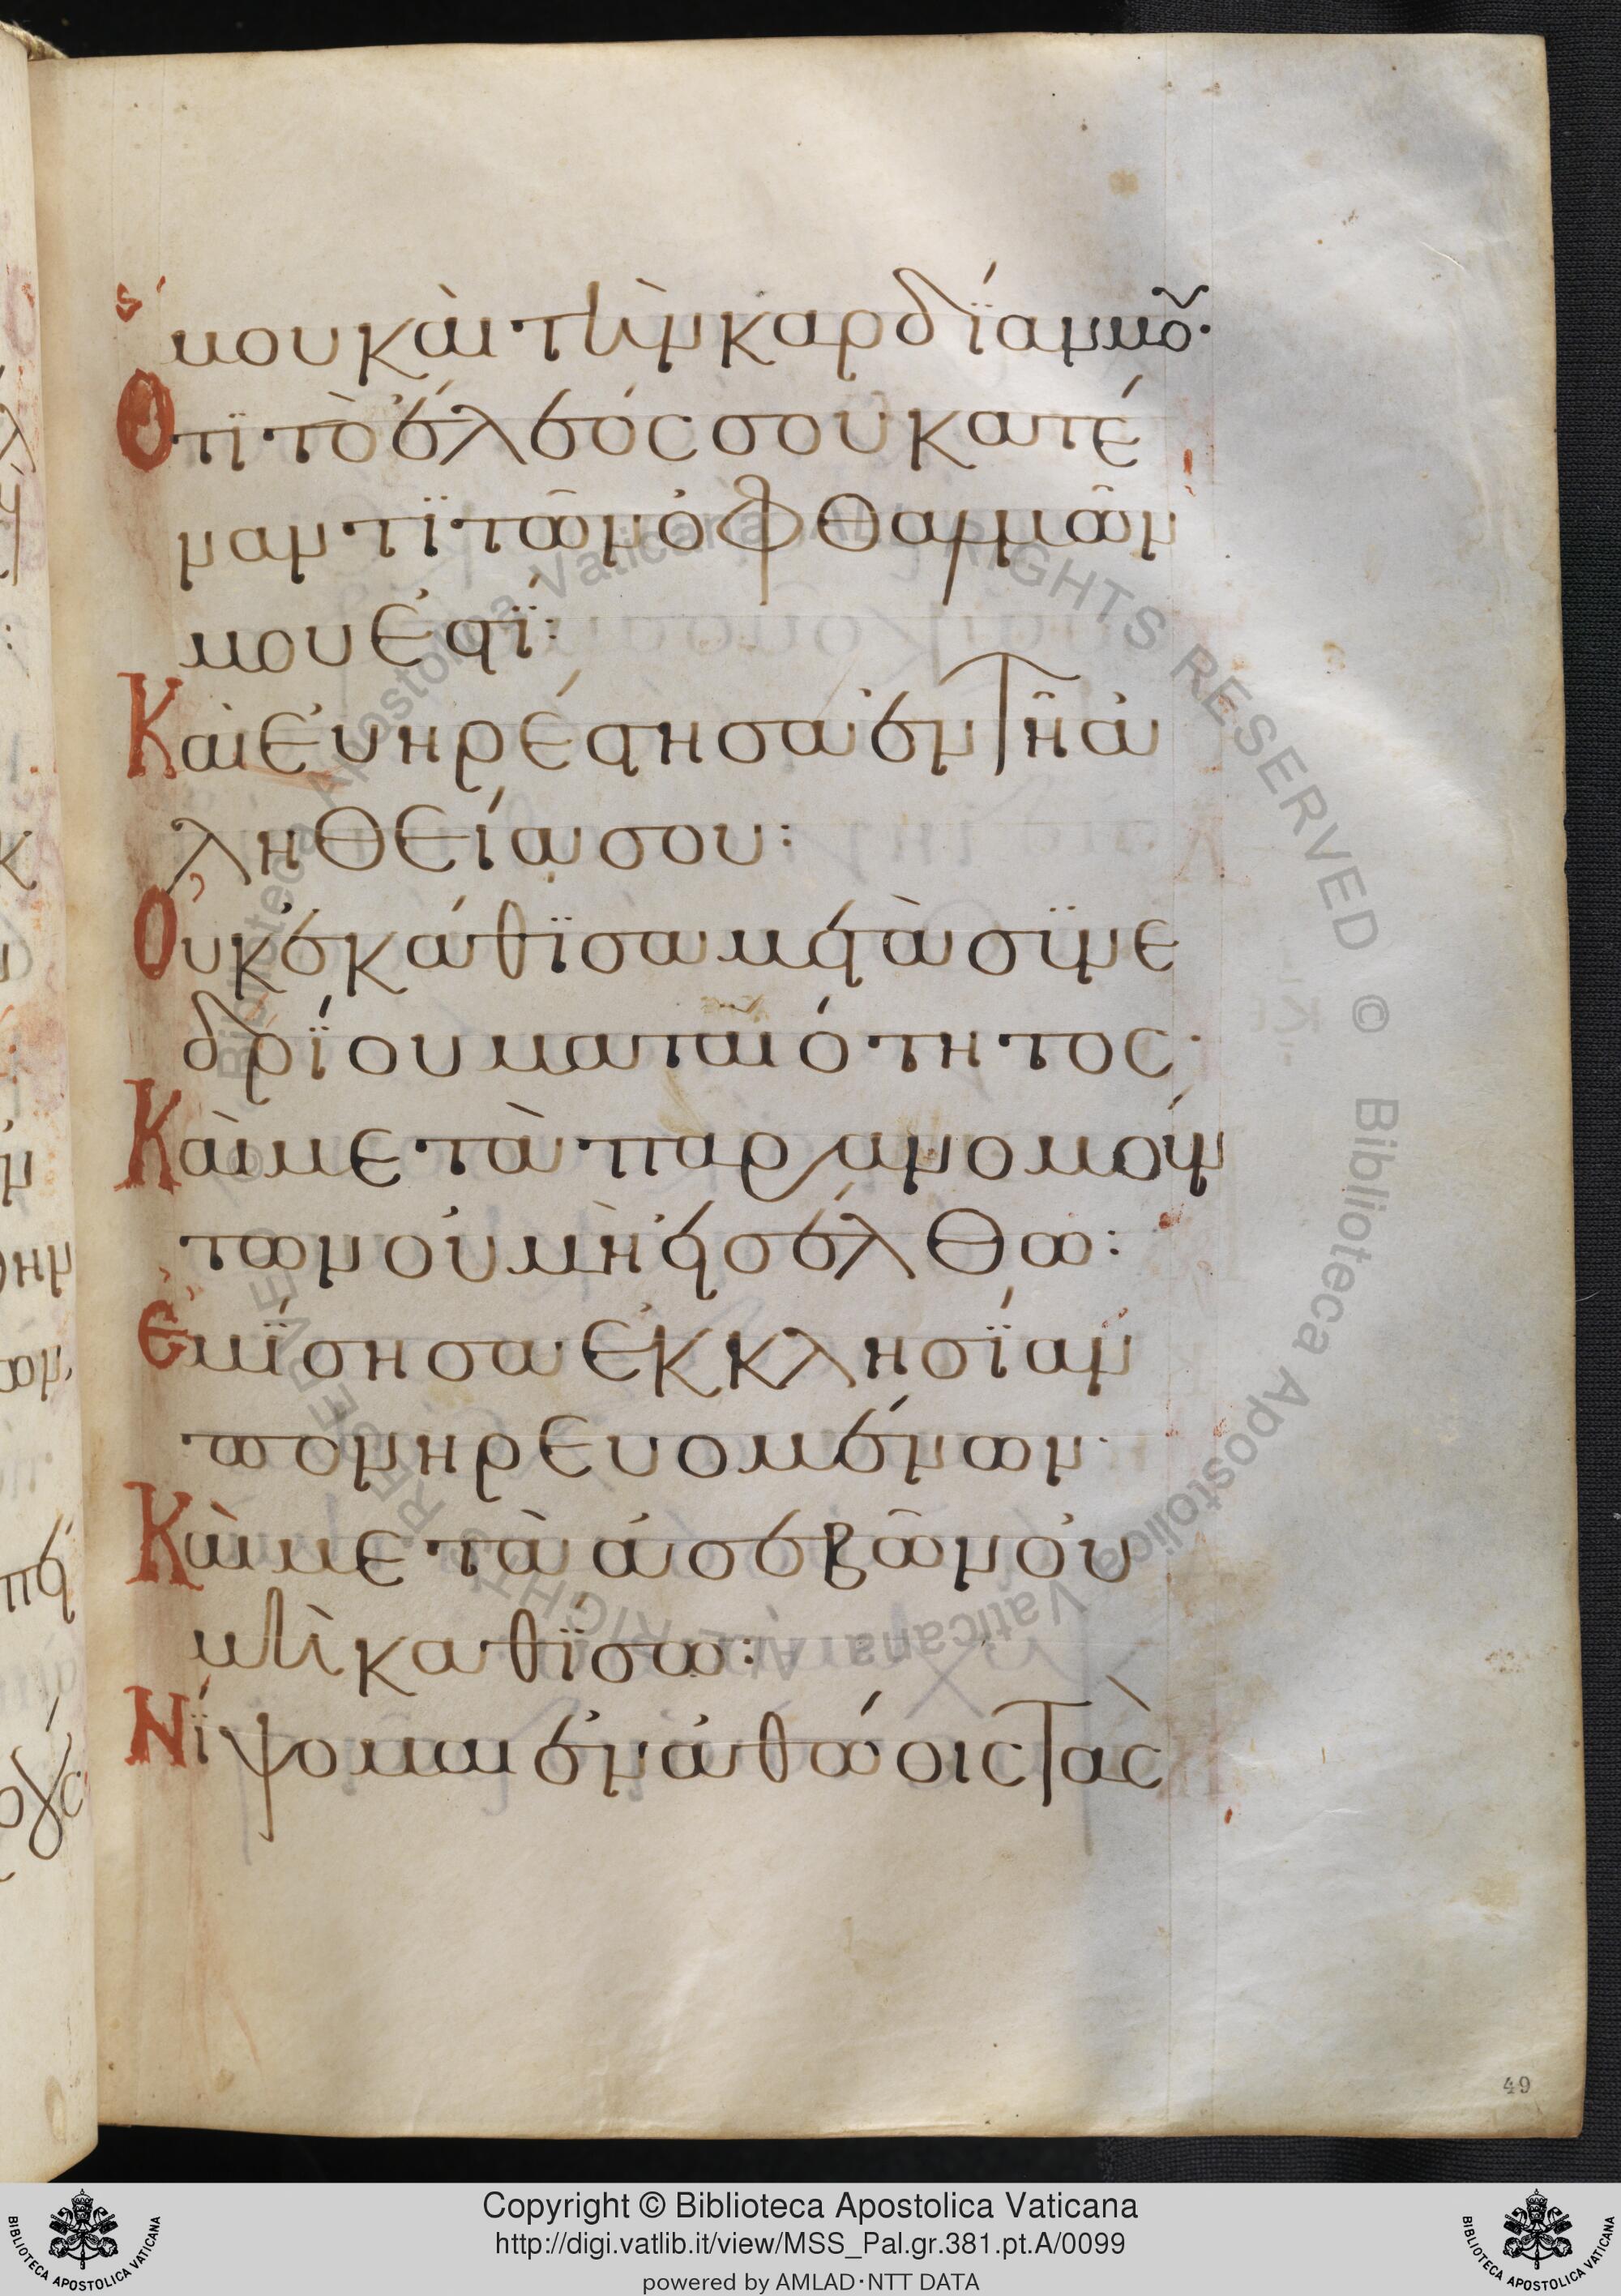 ϛʹ
μου καὶ τὴν καρδίαν μου·
Ὅτϊ τὸ ἔλεός σου κατέ
ναντϊ τῶν ὀφθαλμῶν
μου ἐστϊ:
Καὶ ἐυηρέστησα ἐν τῆ ἀ
ληθεία σου:
Οὐκ ἐκάθϊσα μετὰ συνε
δρΐου ματαιότητος·
Καὶ μετὰ παρανομούν
των οὐ μὴ εἰσέλθω:
Ἐμΐσησα ἐκκλησΐαν
πονηρευομένων·
Καὶ μετὰ ἀσεβῶν οὐ
μὴ καθΐσω:
Νΐψομαι ἐν ἀθώοις τὰς
49
Copyright © Biblioteca Apostolica Vaticana
http://digi.vatlib.it/view/MSS_Pal.gr.381.pt.A/0099
powered by AMLAD·NTT DATA
BIBLIOTECA APOSTOLICA VATICANA
BIBLIOTECA APOSTOLICA VATICANA
© Biblioteca Apostolica Vaticana ALL RIGHTS RESERVED © Biblioteca Apostolica Vaticana ALL RIGHTS RESERVED